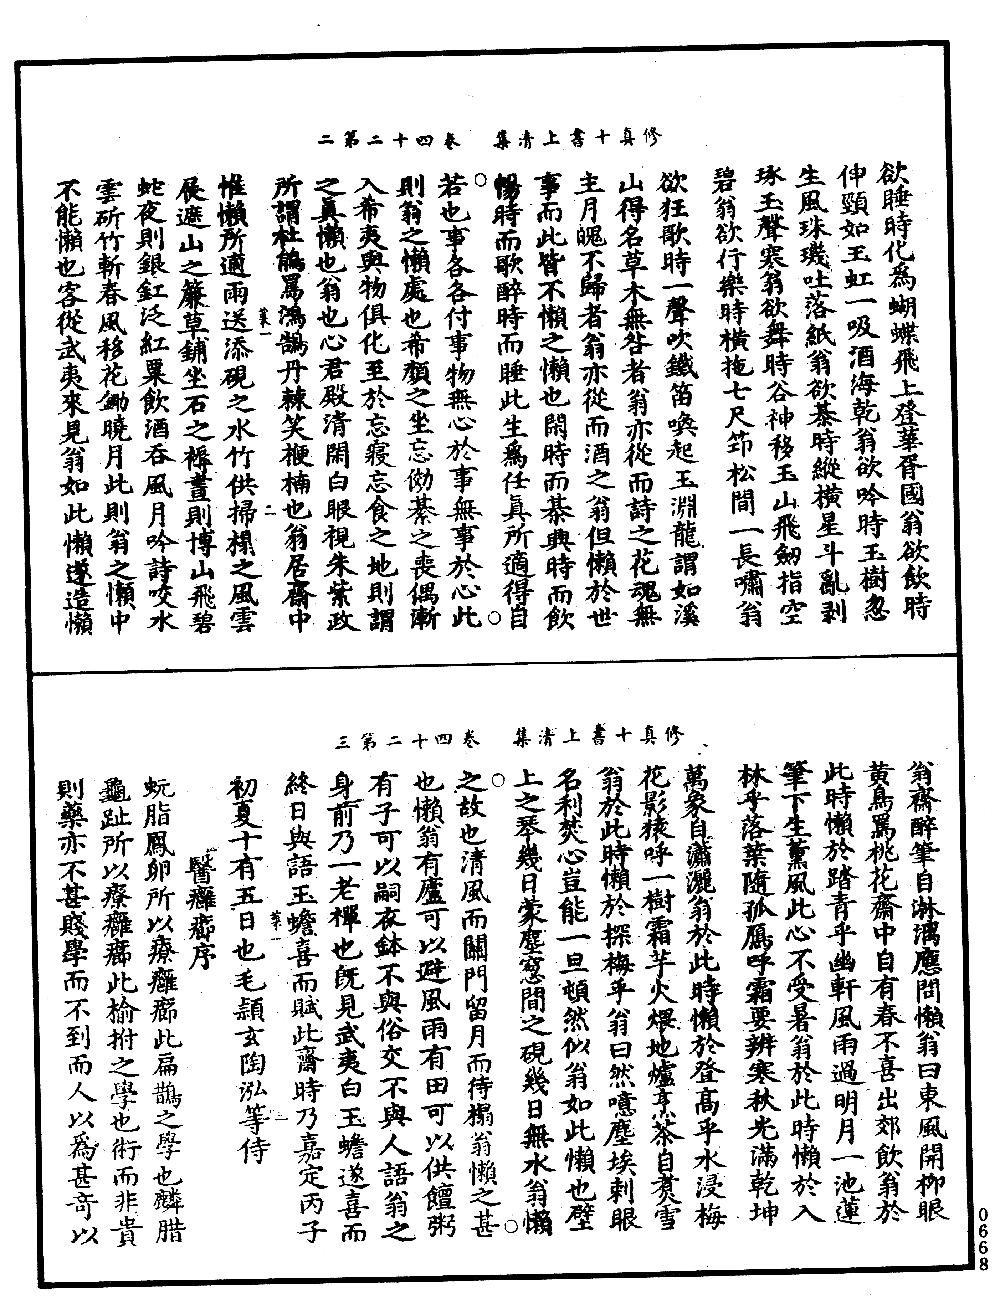 修真十書上清集　卷四十二第二
欲睡時化為蝴蝶飛上登華胥國翁欲飲時
伸頸如玉虹一吸酒海乾翁欲吟時玉樹忽
生風珠璣吐落紙翁欲棊時縱橫星斗亂剥
琢玉聲寒翁欲舞時谷神移玉山飛劒指空
碧翁欲行樂時橫拖七尺笻松間一長嘯翁
欲狂歌時一聲吹鐵笛喚起玉淵龍謂如溪
山得名草木無咎者翁亦從而詩之花魂無
主月魄不歸者翁亦從而酒之翁但懶於世
事而此皆不懶之懶也閑時而棊興時而飲
暢時而歌醉時而睡此生為任真所適得自
○若也事各各付事物無心於事無事於心此○
則翁之懶處也希顏之坐忘傚綦之喪偶漸
入希夷與物俱化至於忘寢忘食之地則謂
之真懶也翁也心君殿清閑白眼視朱紫政
所謂杜鵑罵鴻鵠丹棘笑楩楠也翁居齋中
菓一　二
惟懶所適雨送添硯之水竹供掃榻之風雲
展遮山之簾草鋪坐石之褥晝則博山飛碧
蛇夜則銀釭泛紅粟飲酒吞風月吟詩咬水
雲斫竹斬春風移花鋤曉月此則翁之懶中
不能懶也客從武夷來見翁如此懶遂造懶
修真十書上清集　卷四十二第三
翁齋醉筆自淋漓應問懶翁曰東風開柳眼
黃鳥罵桃花齋中自有春不喜出郊飲翁於
此時懶於踏青乎幽軒風雨過明月一池蓮
筆下生薰風此心不受暑翁於此時懶於入
林乎落葉隨孤鴈呼霜要辨寒秋光滿乾坤
萬象自瀟灑翁於此時懶於登高乎水浸梅
花影猿呼一樹霜芋火煨地爐烹茶自煑雪
翁於此時懶於探梅乎翁曰然噫塵埃刺眼
名利焚心豈能一旦頓然似翁如此懶也壁
上之琴幾日蒙塵窓間之硯幾日無水翁懶
○之故也清風而關門留月而待榻翁懶之甚○
也懶翁有廬可以避風雨有田可以供饘粥
有子可以嗣衣鉢不與俗交不與人語翁之
身前乃一老禪也旣見武夷白玉蟾遂喜而
終日與語玉蟾喜而賦此齋時乃嘉定丙子
菓一　三
初夏十有五日也毛穎玄陶泓等侍
醫癰癤序
蚖脂鳳卵所以療癰癤此扁鵲之學也麟腊
龜趾所以療癰癤此榆拊之學也術而非貴
則藥亦不甚賤學而不到而人以為甚奇以
0668